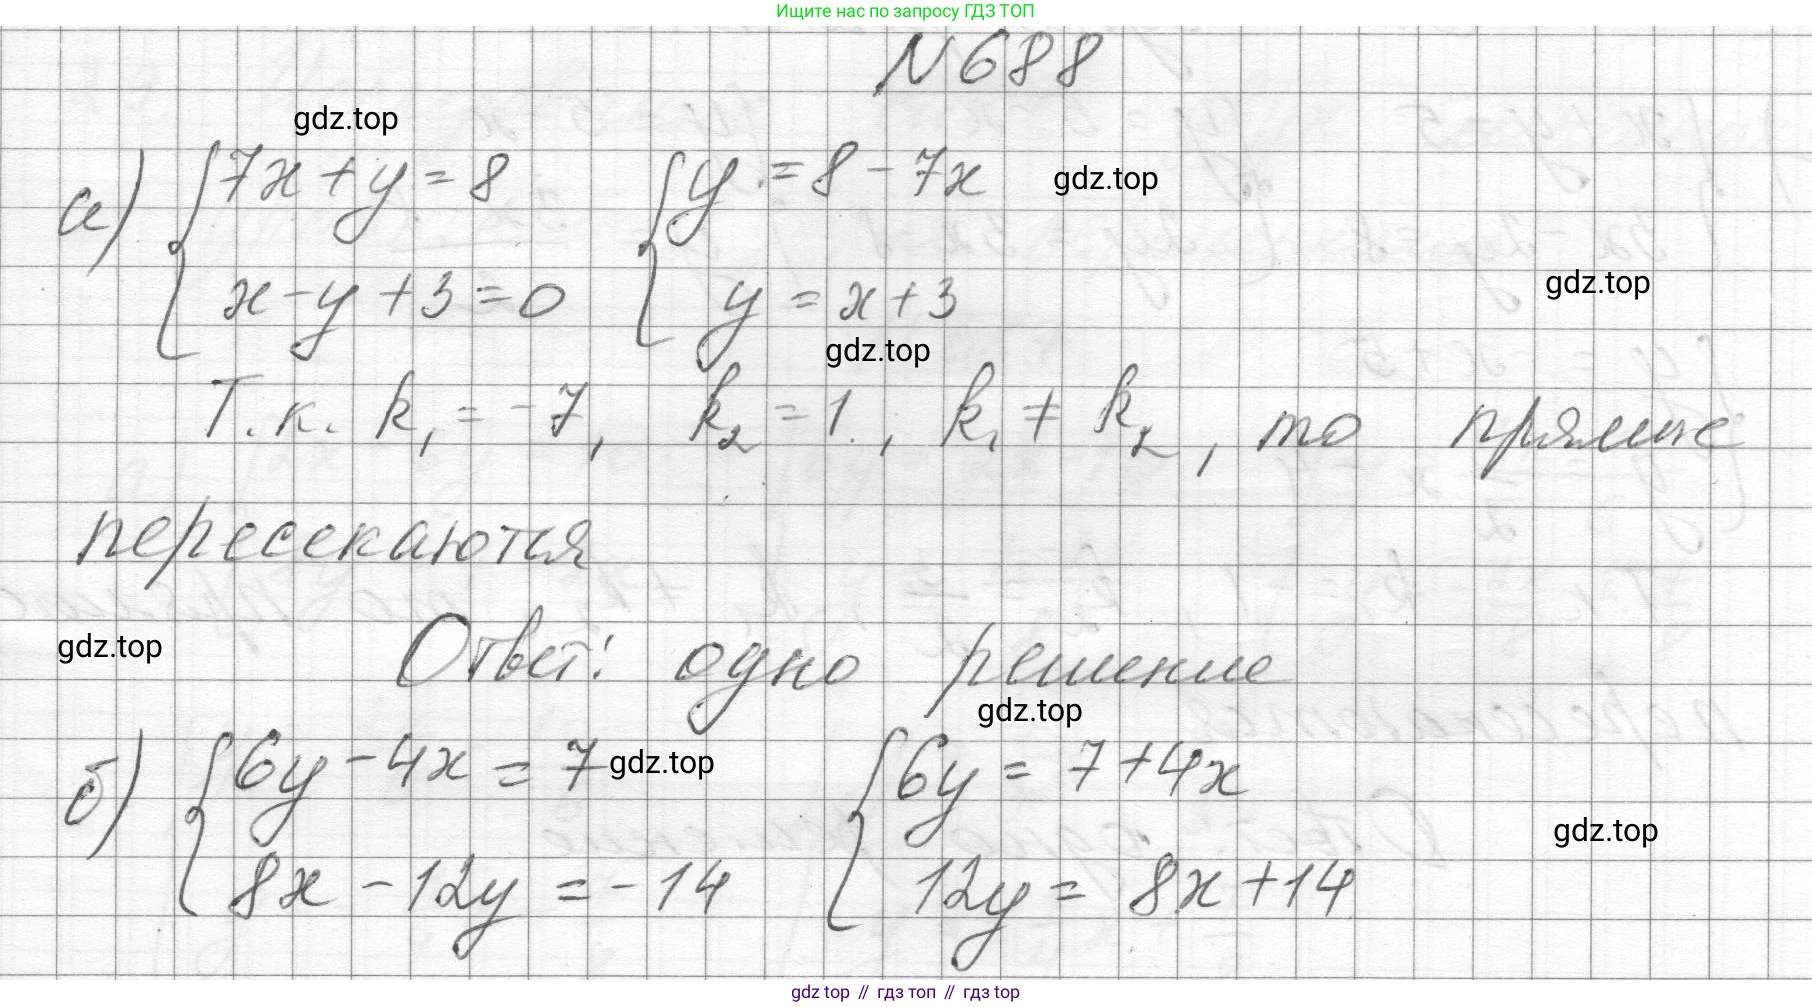 Ищите нас по запросу ГДЗ ТОП
N 688
gdz.top
а) { 7x + y = 8 { y = 8 - 7x gdz.top
x - y + 3 = 0 y = x + 3 gdz.top
gdz.top
Т.к. k₁ = -7, k₂ = 1., k₁ ≠ k₂, то прямые
пересекаются
gdz.top Ответ: одно решение
gdz.top
б) { 6y - 4x = 7 gdz.top { 6y = 7 + 4x
8x - 12y = -14 12y = 8x + 14 gdz.top
gdz top // гдз топ // гдз top